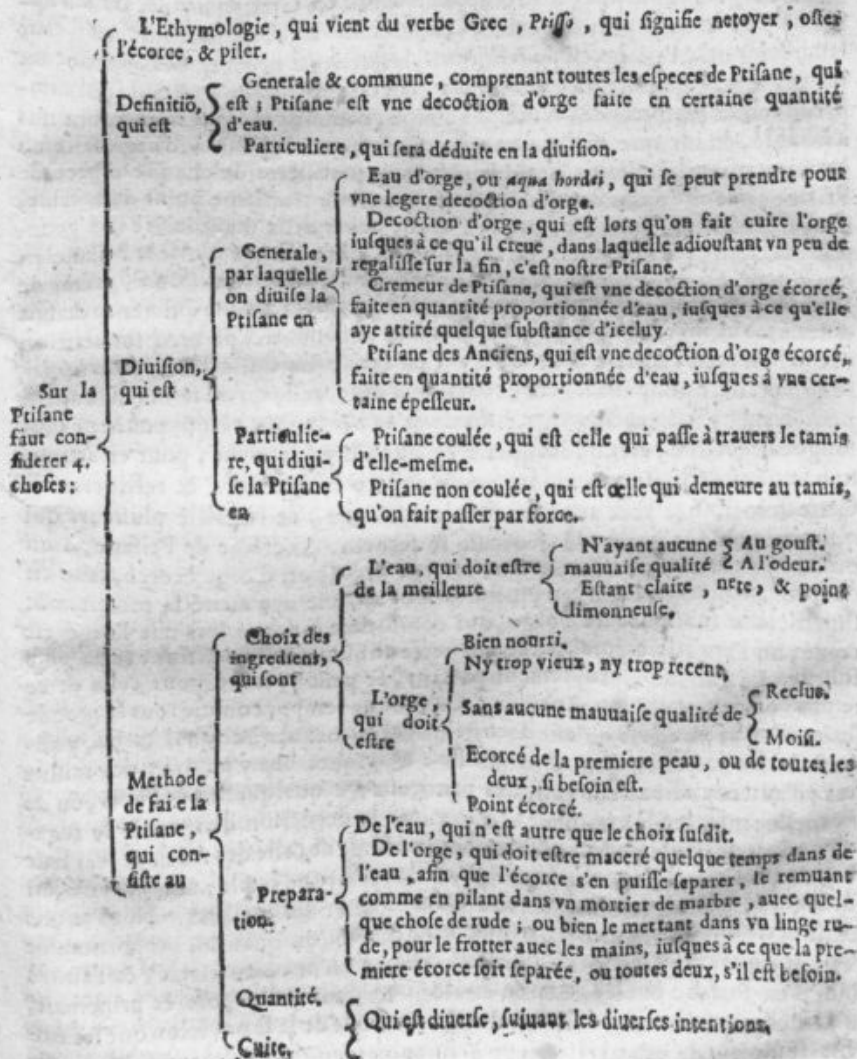 L'Ethymologie, qui vient du verbe Grec, Ptiſſo, qui ſignifie netoyer, oſter
l'écorce, & piler.
Definitiõ,
qui eſt
Generale & commune, comprenant toutes les eſpeces de Ptiſane, qui
eſt; Ptiſane eſt vne decoction d'orge faite en certaine quantité
d'eau.
Particuliere, qui ſera déduite en la diuiſion.
Sur la
Ptiſane
faut con-
ſiderer 4.
choſes:
Diuiſion,
qui eſt
Generale,
par laquelle
on diuiſe la
Ptiſane en
Eau d'orge, ou aqua hordei, qui ſe peut prendre pour
vne legere decoction d'orge.
Decoction d'orge, qui eſt lors qu'on fait cuire l'orge
iuſques à ce qu'il creue, dans laquelle adiouſtant vn peu de
regaliſſe ſur la fin, c'eſt noſtre Ptiſane.
Cremeur de Ptiſane, qui eſt vne decoction d'orge écorcé,
faite en quantité proportionnée d'eau, iuſques à ce qu'elle
aye attiré quelque ſubſtance d'iceluy.
Ptiſane des Anciens, qui eſt vne decoction d'orge écorcé,
faite en quantité proportionnée d'eau, iuſques à vne cer-
taine épeſſeur.
Particulie-
re, qui diui-
ſe la Ptiſane
en
Ptiſane coulée, qui eſt celle qui paſſe à trauers le tamis
d'elle-meſme.
Ptiſane non coulée, qui eſt celle qui demeure au tamis,
qu'on fait paſſer par force.
Methode
de fai e la
Ptiſane,
qui con-
ſiſte au
Choix des
ingrediens,
qui ſont
L'eau, qui doit eſtre
de la meilleure
N'ayant aucune
mauuaiſe qualité
Au gouſt.
A l'odeur.
Eſtant claire, nete, & point
limonneuſe.
L'orge,
qui doit
eſtre
Bien nourri.
Ny trop vieux, ny trop recent,
Sans aucune mauuaiſe qualité de
Reclus.
Moiſi.
Ecorcé de la premiere peau, ou de toutes les
deux, ſi beſoin eſt.
Point écorcé.
Prepara-
tion.
De l'eau, qui n'eſt autre que le choix ſuſdit.
De l'orge, qui doit eſtre maceré quelque temps dans de
l'eau, afin que l'écorce s'en puiſſe ſeparer, le remuant
comme en pilant dans vn mortier de marbre, auec quel-
que choſe de rude; ou bien le mettant dans vn linge ru-
de, pour le frotter auec les mains, iuſques à ce que la pre-
miere écorce ſoit ſeparée, ou toutes deux, s'il eſt beſoin.
Quantité.
Cuite,
Qui eſt diuerſe, ſuiuant les diuerſes intentions,